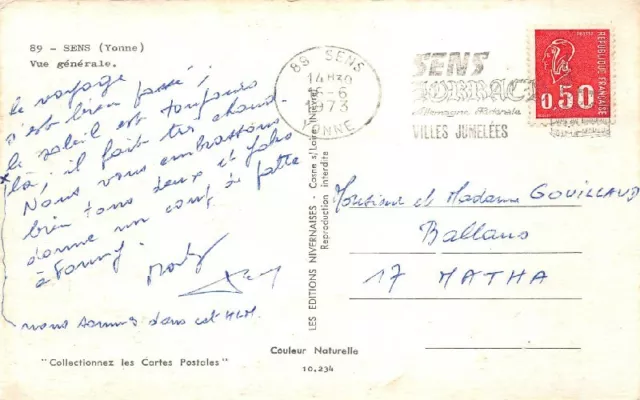 89 - SENS (Yonne)
Vue générale.
le voyage
s'est bien passé ;
le soleil est toujours
là, il fait très chaud.
Nous vous embrassons
bien tous deux et
donne un coup de patte
à
nous sommes dans cet HLM.
"Collectionnez les Cartes Postales"
LES EDITIONS NIVERNAISES - Cosne s/Loire (Nièvre)
Reproduction interdite
Couleur Naturelle
10.234
89 SENS
14H30
6-6
1973
YONNE
SENS
LORRACH
Allemagne Fédérale
VILLES JUMELÉES
REPUBLIQUE FRANÇAISE
POSTES
0,50
Monsieur et Madame GOUILLAUD
Ballans
17 MATHA